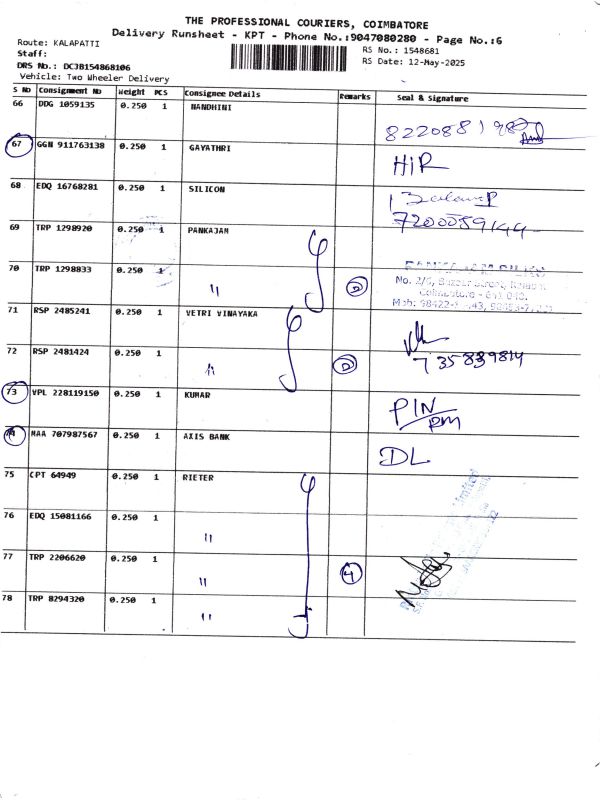 THE PROFESSIONAL COURIERS, COIMBATORE
Delivery Runsheet - KPT - Phone No.:9047080280 - Page No.:6
Route: KALAPATTI
RS No.: 1548681
Staff:
RS Date: 12-May-2025
DRS No.: DC3B154868106
Vehicle: Two Wheeler Delivery
S No Consignment No Weight PCS Consignee Details Remarks Seal & Signature
66 DDG 1059135 0.250 1 NANDHINI
67 GGN 911763138 0.250 1 GAYATHRI
HIR
68 EDQ 16768281 0.250 1 SILICON
7200059144
69 TRP 1298920 0.250 1 PANKAJAM
70 TRP 1298833 0.250 1 " 2
71 RSP 2485241 0.250 1 VETRI VINAYAKA
72 RSP 2481424 0.250 1 " 2
735839814
73 VPL 228119150 0.250 1 KUMAR
PIN/PM
74 MAA 707987567 0.250 1 AXIS BANK
DL
75 CPT 64949 0.250 1 RIETER
76 EDQ 15081166 0.250 1 "
77 TRP 2206620 0.250 1 " 4
78 TRP 8294320 0.250 1 "